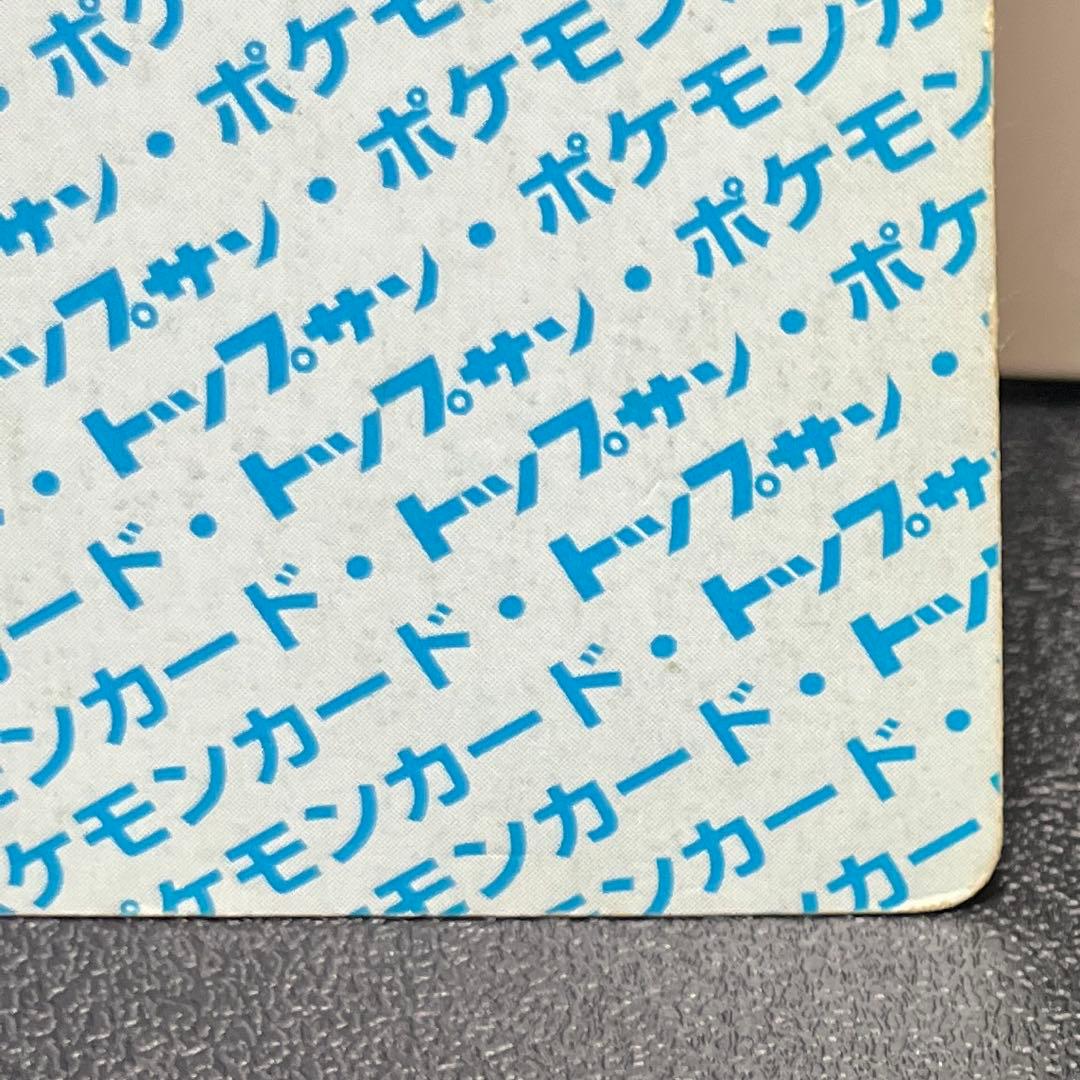 ・ポケ
サン・ポケモ
ップサン・ポケモン
・トップサン・ポケモンカ
ード・トップサン・ポケモン
ンカード・トップサン・ポケ
ケモンカード・トップサン・
ケモンカード・トップサ
モンカード・トッ
ンカード・
カー